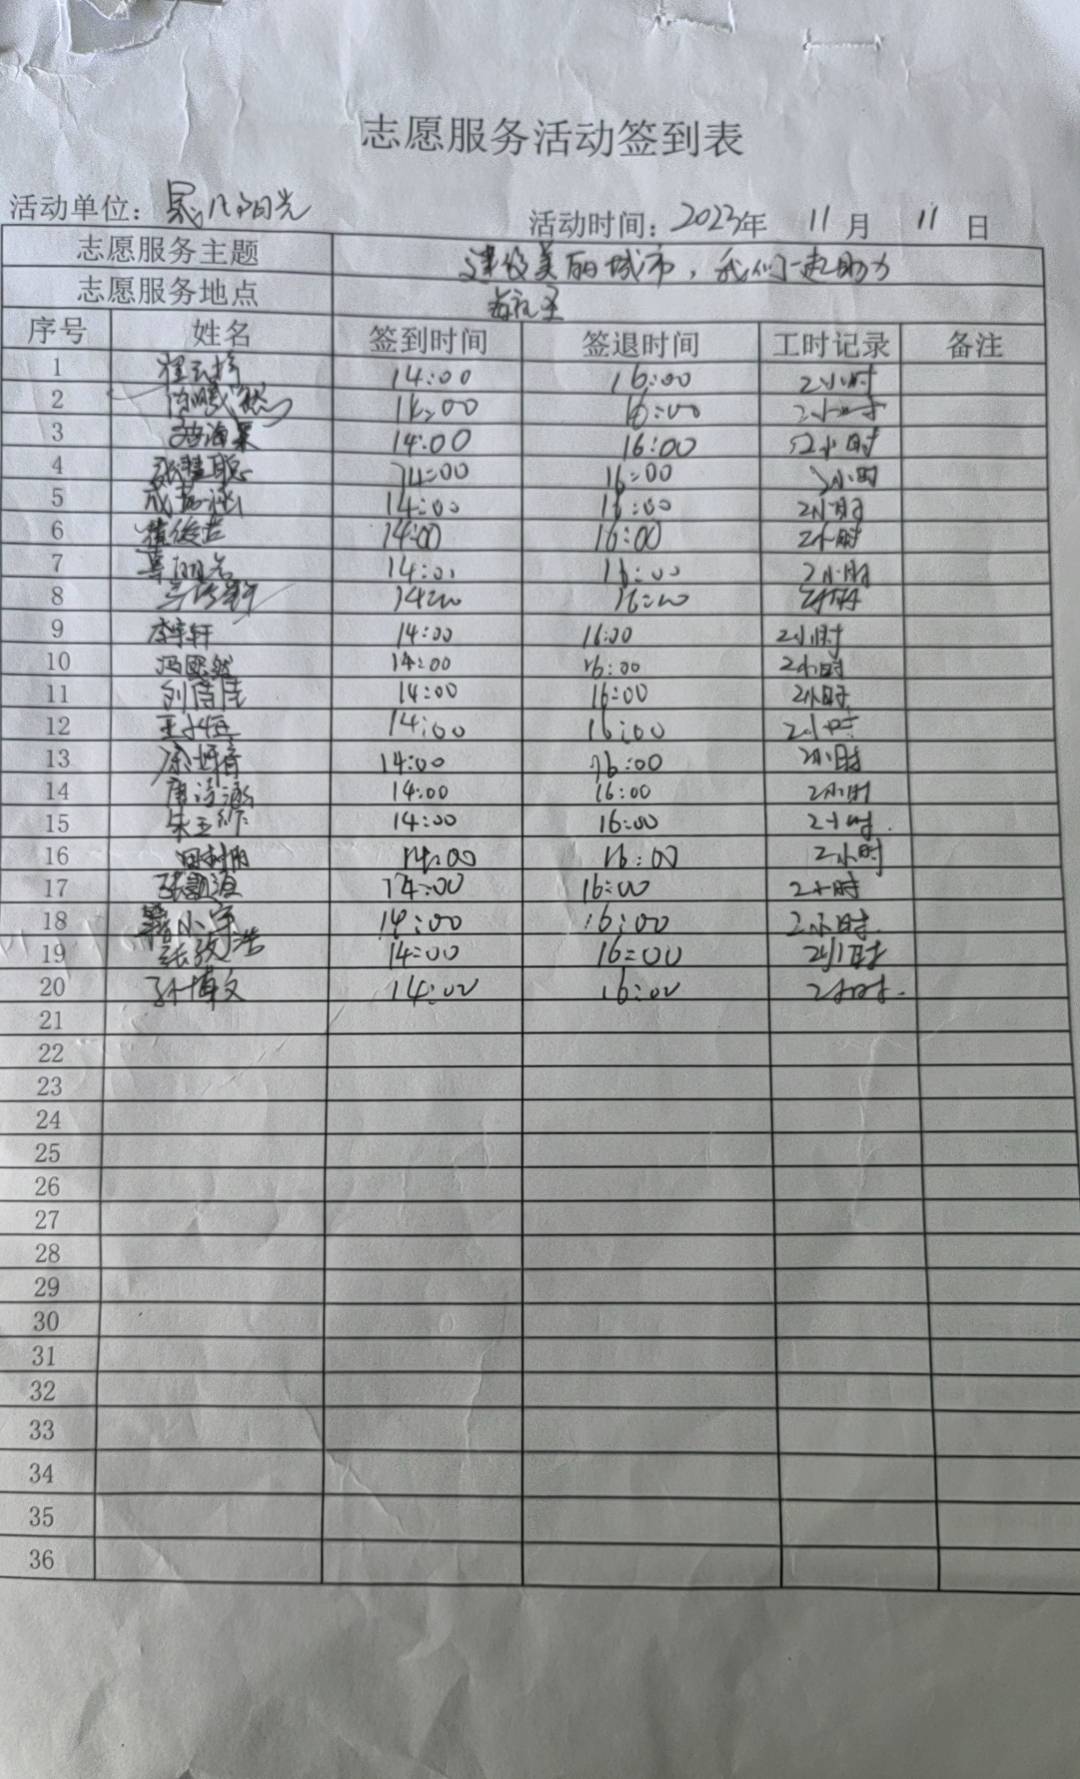 志愿服务活动签到表
活动单位: 阳光 活动时间: 2023年 11月 11日
志愿服务主题 建设美丽城市，我们一起助力
志愿服务地点
序号 姓名 签到时间 签退时间 工时记录 备注
1 14:00 16:00 2小时
2 14:00 16:00 2小时
3 14:00 16:00 2小时
4 张慧聪 14:00 16:00 2小时
5 14:00 16:00 2小时
6 14:00 16:00 2小时
7 14:00 16:00 2小时
8 14:00 16:00 2小时
9 李宇轩 14:00 16:00 2小时
10 冯熙然 14:00 16:00 2小时
11 14:00 16:00 2小时
12 王子恒 14:00 16:00 2小时
13 14:00 16:00 2小时
14 唐诗涵 14:00 16:00 2小时
15 14:00 16:00 2小时.
16 14:00 16:00 2小时
17 14:00 16:00 2小时
18 小宇 14:00 16:00 2小时.
19 14:00 16:00 2小时
20 孙博文 14:00 16:00 2小时.
21
22
23
24
25
26
27
28
29
30
31
32
33
34
35
36